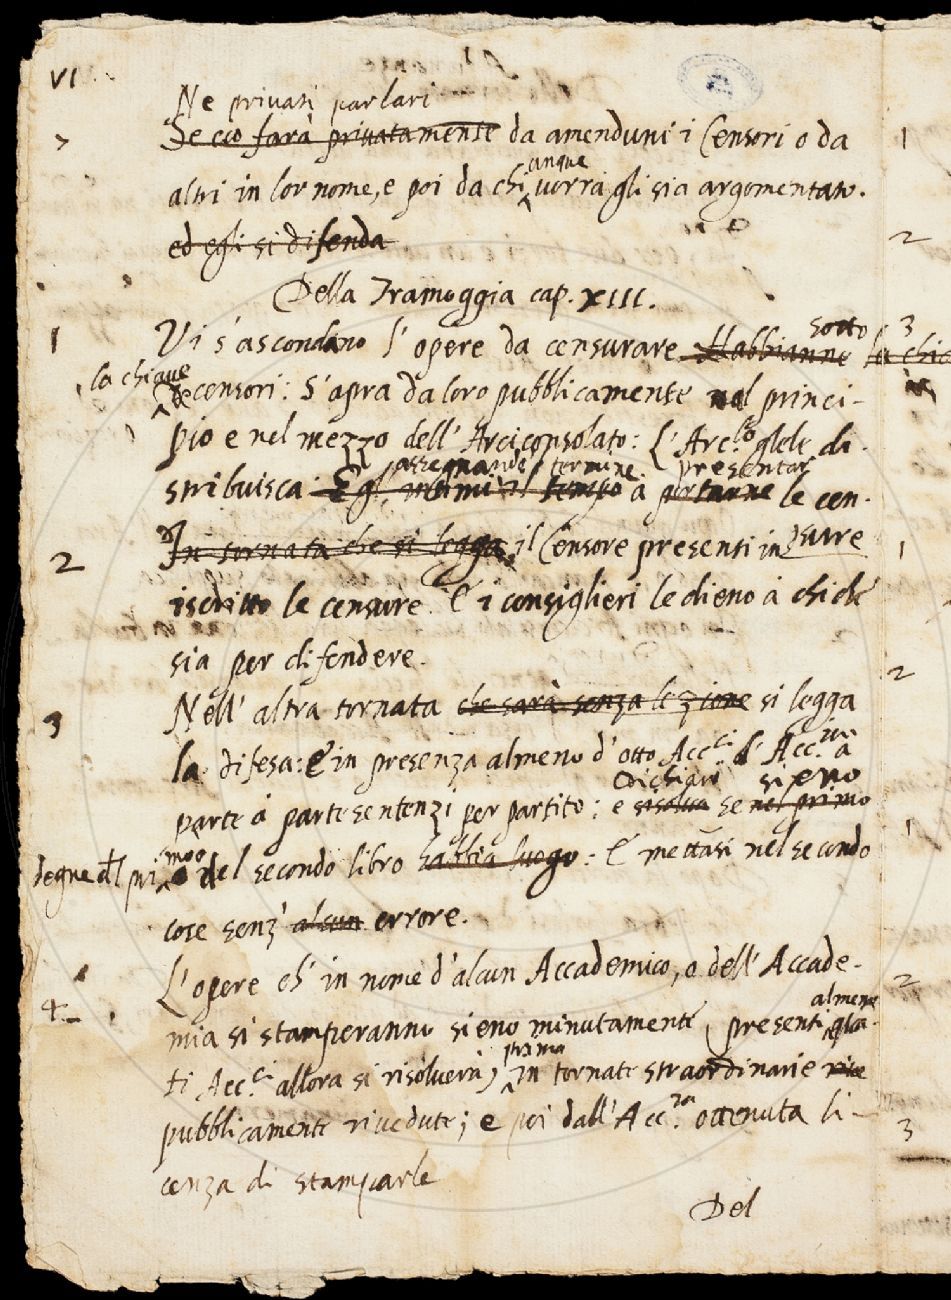 VI
Ne privati parlari
7 Se ciò farà privatamente da amenduni i Censori o da
altri in lor nome, e poi da chi unque vorrà gli sia argomentato.
ed egli si difenda
Della Tramoggia cap. XIII.
1 Vi s'ascondano l'opere da censurare Habbianne sotto la
la chiave
censori: S'apra da loro pubblicamente nel princi-
pio e nel mezzo dell'Arciconsolato: L'Arc.lo gliele di-
assegnando termine presentar
stribuisca à portarne le cen-
sure
2 In tornata che si legga il Censore presenti in
iscritto le censure. E i consiglieri le dieno à chi de
sia per difendere.
3 Nell'altra tornata che sarà senza lezione si legga
la difesa: E in presenza almeno d'otto Acc.ci l'Acc.ia à
dichiari sieno
parte à parte sentenzi per partito: e se nel primo
degne del primo
o del secondo libro habbia luogo: E mettasi nel secondo
cose senz' alcun errore.
4 L'opere ch' in nome d'alcun Accademico, o dell'Accade-
almeno
mia si stamperanno sieno minutamente (presenti
prima
ti Acc.ci allora si risolverà) in tornate straordinarie
pubblicamente rivedute; e poi dall'Acc.ia ottenuta li-
cenza di stamparle
Del
1
2
3
1
2
1
2
3